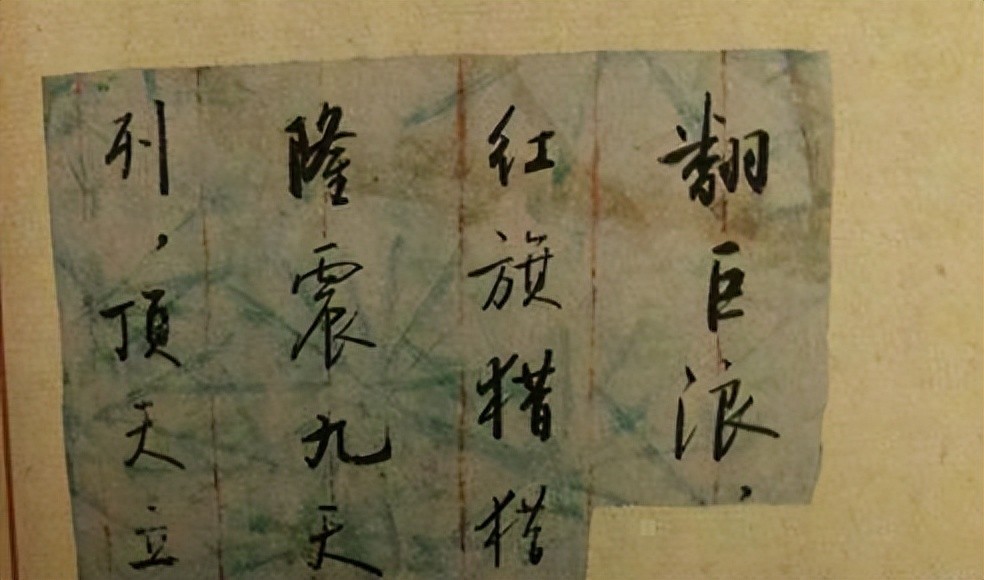 翻巨浪，
红旗猎猎
隆震九天
列，頂天立